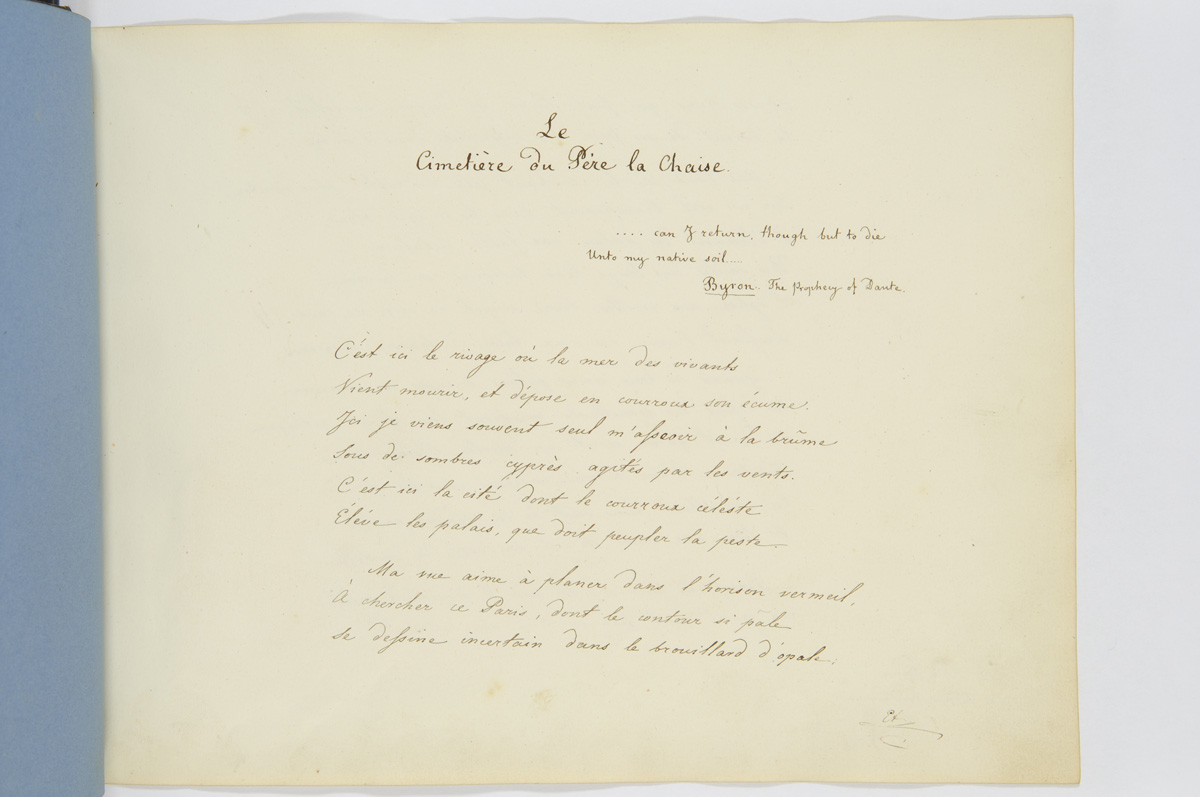 Le
Cimetière du Père la Chaise.
.... can I return, though but to die
Unto my native soil....
Byron. The Prophecy of Dante.
C'est ici le rivage où la mer des vivants
Vient mourir, et dépose en courroux son écume.
Ici je viens souvent seul m'asseoir à la brûme
Sous de sombres cyprès agités par les vents.
C'est ici la cité dont le courroux céléste
Élève les palais, que doit peupler la peste.
Ma vue aime à planer dans l'horison vermeil,
À chercher ce Paris, dont le contour si pâle
Se dessine incertain dans le brouillard d'opale;
Et